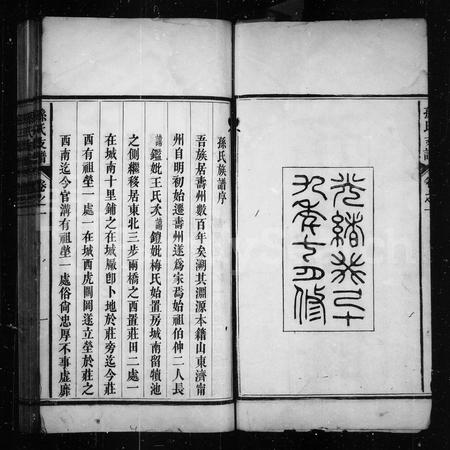 孫氏支譜 卷之一
光緒癸巳十
九年七月修
孫氏族譜序
吾族居壽州數百年矣溯其淵源本籍山東濟甯
州自明初始遷壽州遂爲家焉始祖伯仲二人長
諱鑑妣王氏次諱鎧妣梅氏始置房城南留犢池
之側繼移居東北三步兩橋之西置莊田二處一
在城南十里鋪之在城廠卽卜地於莊旁迄今莊
西有祖塋一處一在城西虎頭岡遂立塋於莊之
西南迄今官溝有祖塋一處俗尙忠厚不事虛靡
孫氏支譜 卷之一